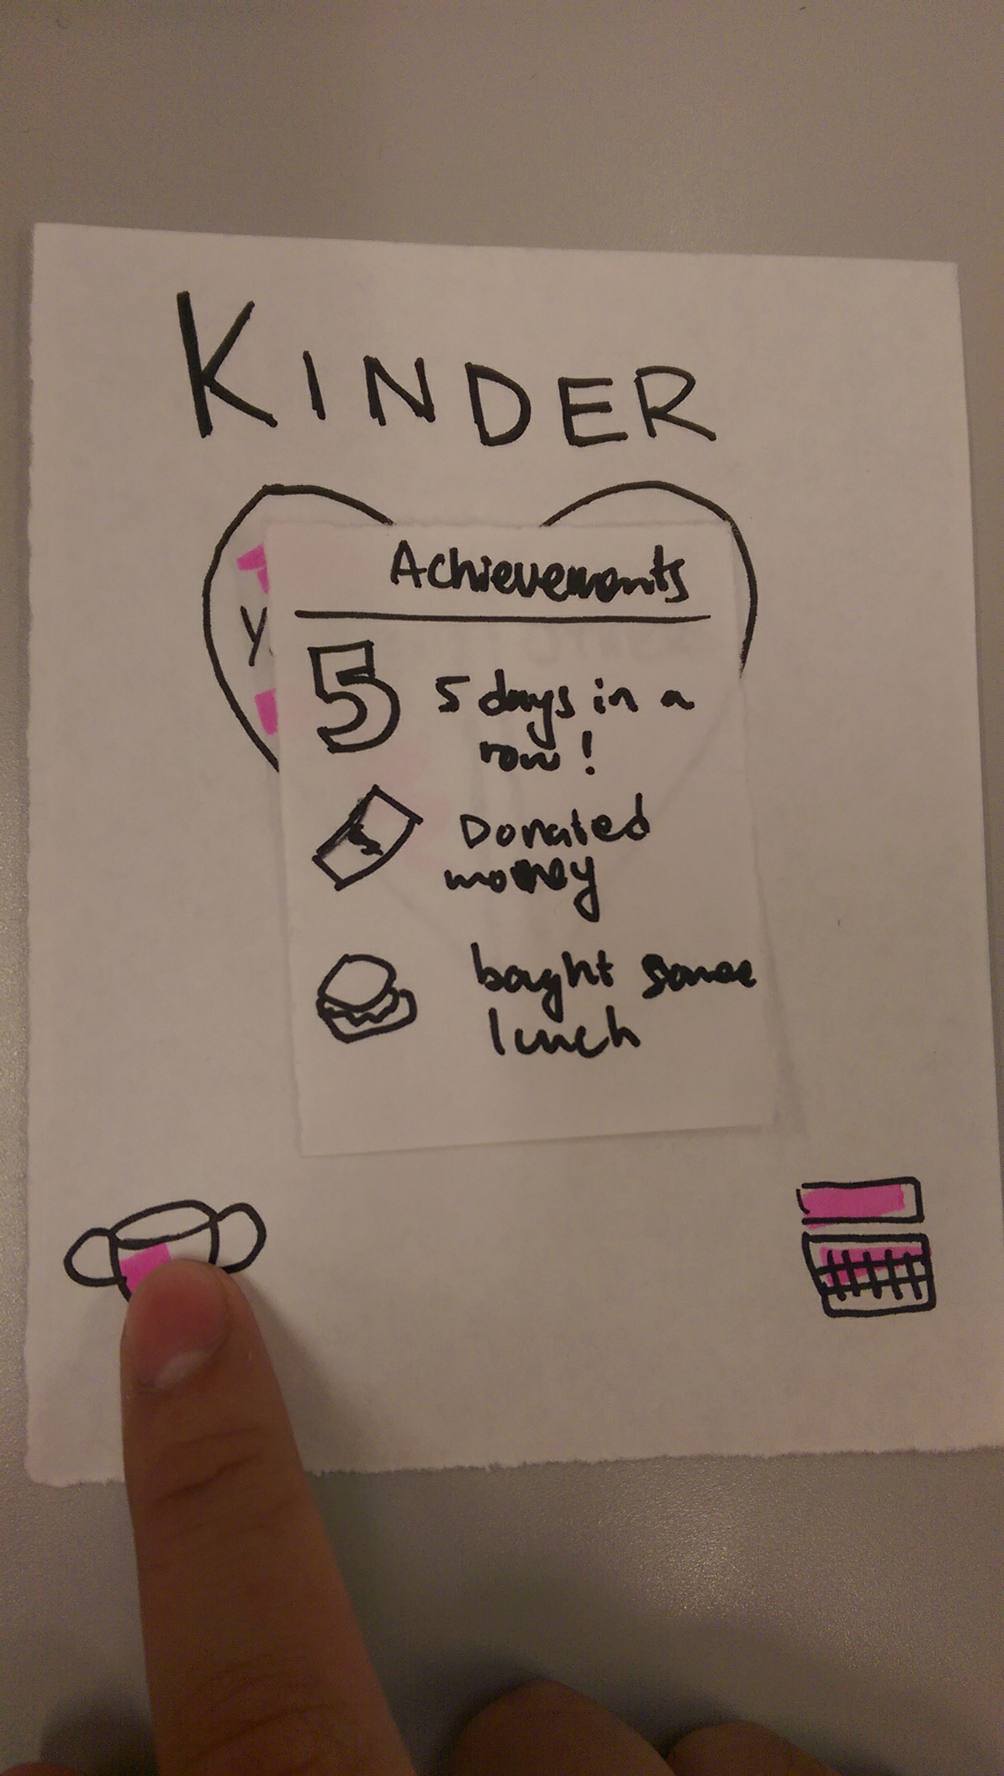 KINDER
Achievements
5 5 days in a
row!
Donated
money
bought some
lunch